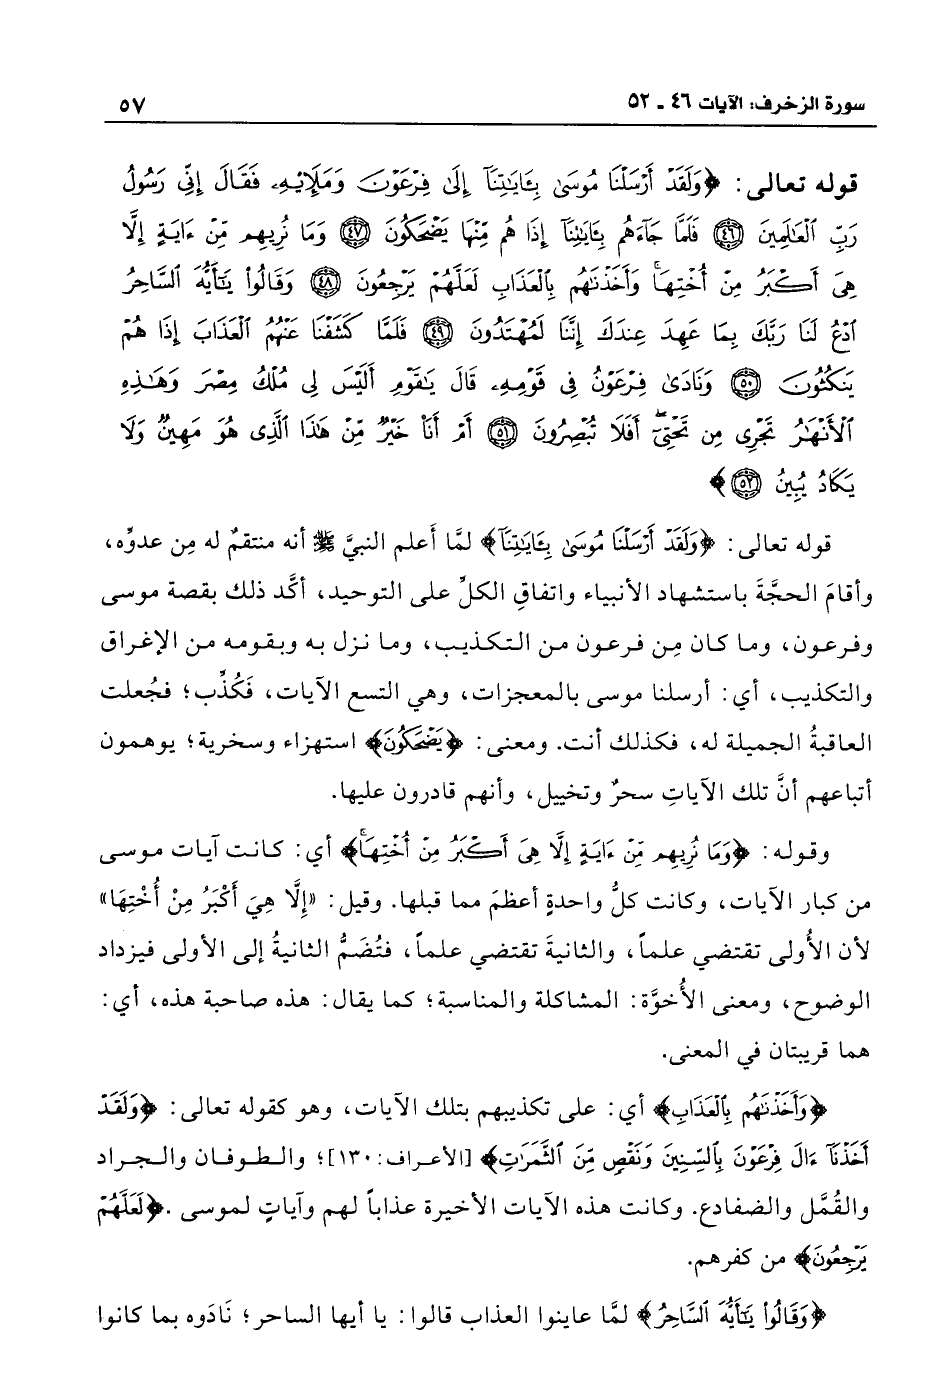 سورة الزخرف: الآيات ٤٦ ـ ٥٢
٥٧
قوله تعالى: ﴿وَلَقَدْ أَرْسَلْنَا مُوسَىٰ بِـَٔايَـٰتِنَآ إِلَىٰ فِرْعَوْنَ وَمَلَإِيْهِۦ فَقَالَ إِنِّى رَسُولُ
رَبِّ ٱلْعَـٰلَمِينَ ٤٦ فَلَمَّا جَآءَهُم بِـَٔايَـٰتِنَآ إِذَا هُم مِّنْهَا يَضْحَكُونَ ٤٧ وَمَا نُرِيهِم مِّنْ ءَايَةٍ إِلَّا
هِىَ أَكْبَرُ مِنْ أُخْتِهَا ۖ وَأَخَذْنَـٰهُم بِٱلْعَذَابِ لَعَلَّهُمْ يَرْجِعُونَ ٤٨ وَقَالُوا۟ يَـٰٓأَيُّهَ ٱلسَّاحِرُ
ٱدْعُ لَنَا رَبَّكَ بِمَا عَهِدَ عِندَكَ إِنَّنَا لَمُهْتَدُونَ ٤٩ فَلَمَّا كَشَفْنَا عَنْهُمُ ٱلْعَذَابَ إِذَا هُمْ
يَنكُثُونَ ٥٠ وَنَادَىٰ فِرْعَوْنُ فِى قَوْمِهِۦ قَالَ يَـٰقَوْمِ أَلَيْسَ لِى مُلْكُ مِصْرَ وَهَـٰذِهِ
ٱلْأَنْهَـٰرُ تَجْرِى مِن تَحْتِىٓ ۖ أَفَلَا تُبْصِرُونَ ٥١ أَمْ أَنَا۠ خَيْرٌ مِّنْ هَـٰذَا ٱلَّذِى هُوَ مَهِينٌ وَلَا
يَكَادُ يُبِينُ ٥٢﴾
قوله تعالى: ﴿وَلَقَدْ أَرْسَلْنَا مُوسَىٰ بِـَٔايَـٰتِنَآ﴾ لمَّا أَعلم النبيَّ ﷺ أنه منتقمٌ له مِن عدوِّه،
وأقامَ الحجَّةَ باستشهاد الأنبياء واتفاقِ الكلِّ على التوحيد، أكَّد ذلك بقصة موسى
وفرعون، وما كان مِن فرعون من التكذيب، وما نزل به وبقومه من الإغراق
والتكذيب، أي: أرسلنا موسى بالمعجزات، وهي التسع الآيات، فَكُذِّب؛ فجُعلت
العاقبةُ الجميلة له، فكذلك أنت. ومعنى: ﴿يَضْحَكُونَ﴾ استهزاء وسخرية؛ يوهمون
أتباعهم أنَّ تلك الآياتِ سحرٌ وتخييل، وأنهم قادرون عليها.
وقوله: ﴿وَمَا نُرِيهِم مِّنْ ءَايَةٍ إِلَّا هِىَ أَكْبَرُ مِنْ أُخْتِهَا ۖ﴾ أي: كانت آيات موسى
من كبار الآيات، وكانت كلُّ واحدةٍ أعظمَ مما قبلها. وقيل: «إِلَّا هِيَ أَكْبَرُ مِنْ أُخْتِهَا»
لأن الأُولى تقتضي علماً، والثانيةَ تقتضي علماً، فتُضَمُّ الثانيةُ إلى الأولى فيزداد
الوضوح، ومعنى الأُخوَّة: المشاكلة والمناسبة؛ كما يقال: هذه صاحبة هذه، أي:
هما قريبتان في المعنى.
﴿وَأَخَذْنَـٰهُم بِٱلْعَذَابِ﴾ أي: على تكذيبهم بتلك الآيات، وهو كقوله تعالى: ﴿وَلَقَدْ
أَخَذْنَآ ءَالَ فِرْعَوْنَ بِٱلسِّنِينَ وَنَقْصٍ مِّنَ ٱلثَّمَرَٰتِ﴾ [الأعراف: ١٣٠]؛ والطوفان والجراد
والقُمَّل والضفادع. وكانت هذه الآيات الأخيرة عذاباً لهم وآياتٍ لموسى. ﴿لَعَلَّهُمْ
يَرْجِعُونَ﴾ من كفرهم.
﴿وَقَالُوا۟ يَـٰٓأَيُّهَ ٱلسَّاحِرُ﴾ لمَّا عاينوا العذاب قالوا: يا أيها الساحر؛ نَادَوه بما كانوا